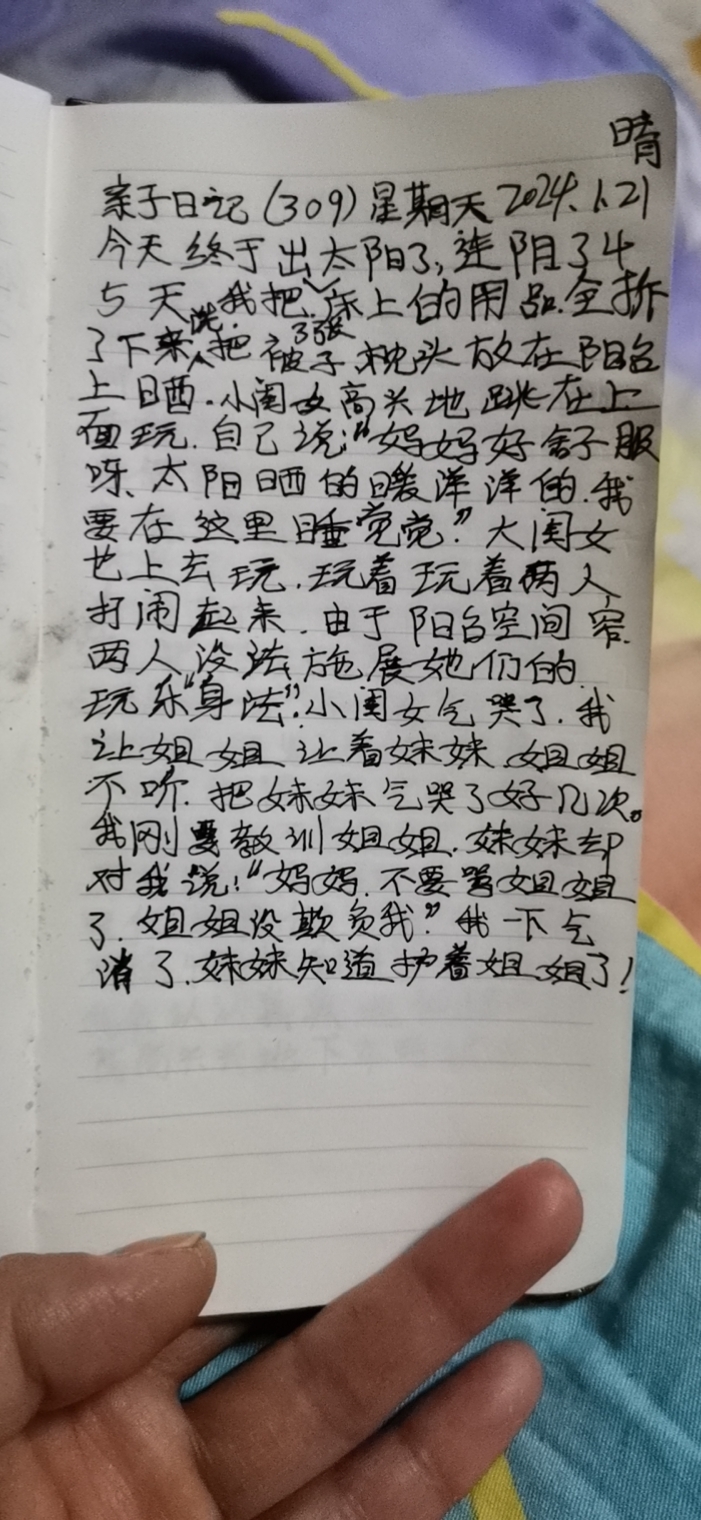 晴
亲子日记(309)星期天2024.1.21
今天终于出太阳了,连阴了4
5天.我把床上的用品全拆
了下来洗.把被子枕头放在阳台
上晒.小闺女高兴地跳在上
面玩.自己说:“妈妈好舒服
呀、太阳晒的暖洋洋的.我
要在这里睡觉觉.”大闺女
也上去玩.玩着玩着两人
打闹起来.由于阳台空间窄.
两人没法施展她们的
玩乐“身法”.小闺女气哭了.我
让姐姐让着妹妹.姐姐
不听.把妹妹气哭了好几次。
我刚要教训姐姐.妹妹却
对我说:“妈妈.不要骂姐姐
了.姐姐没欺负我.”我一下气
消了.妹妹知道护着姐姐了!